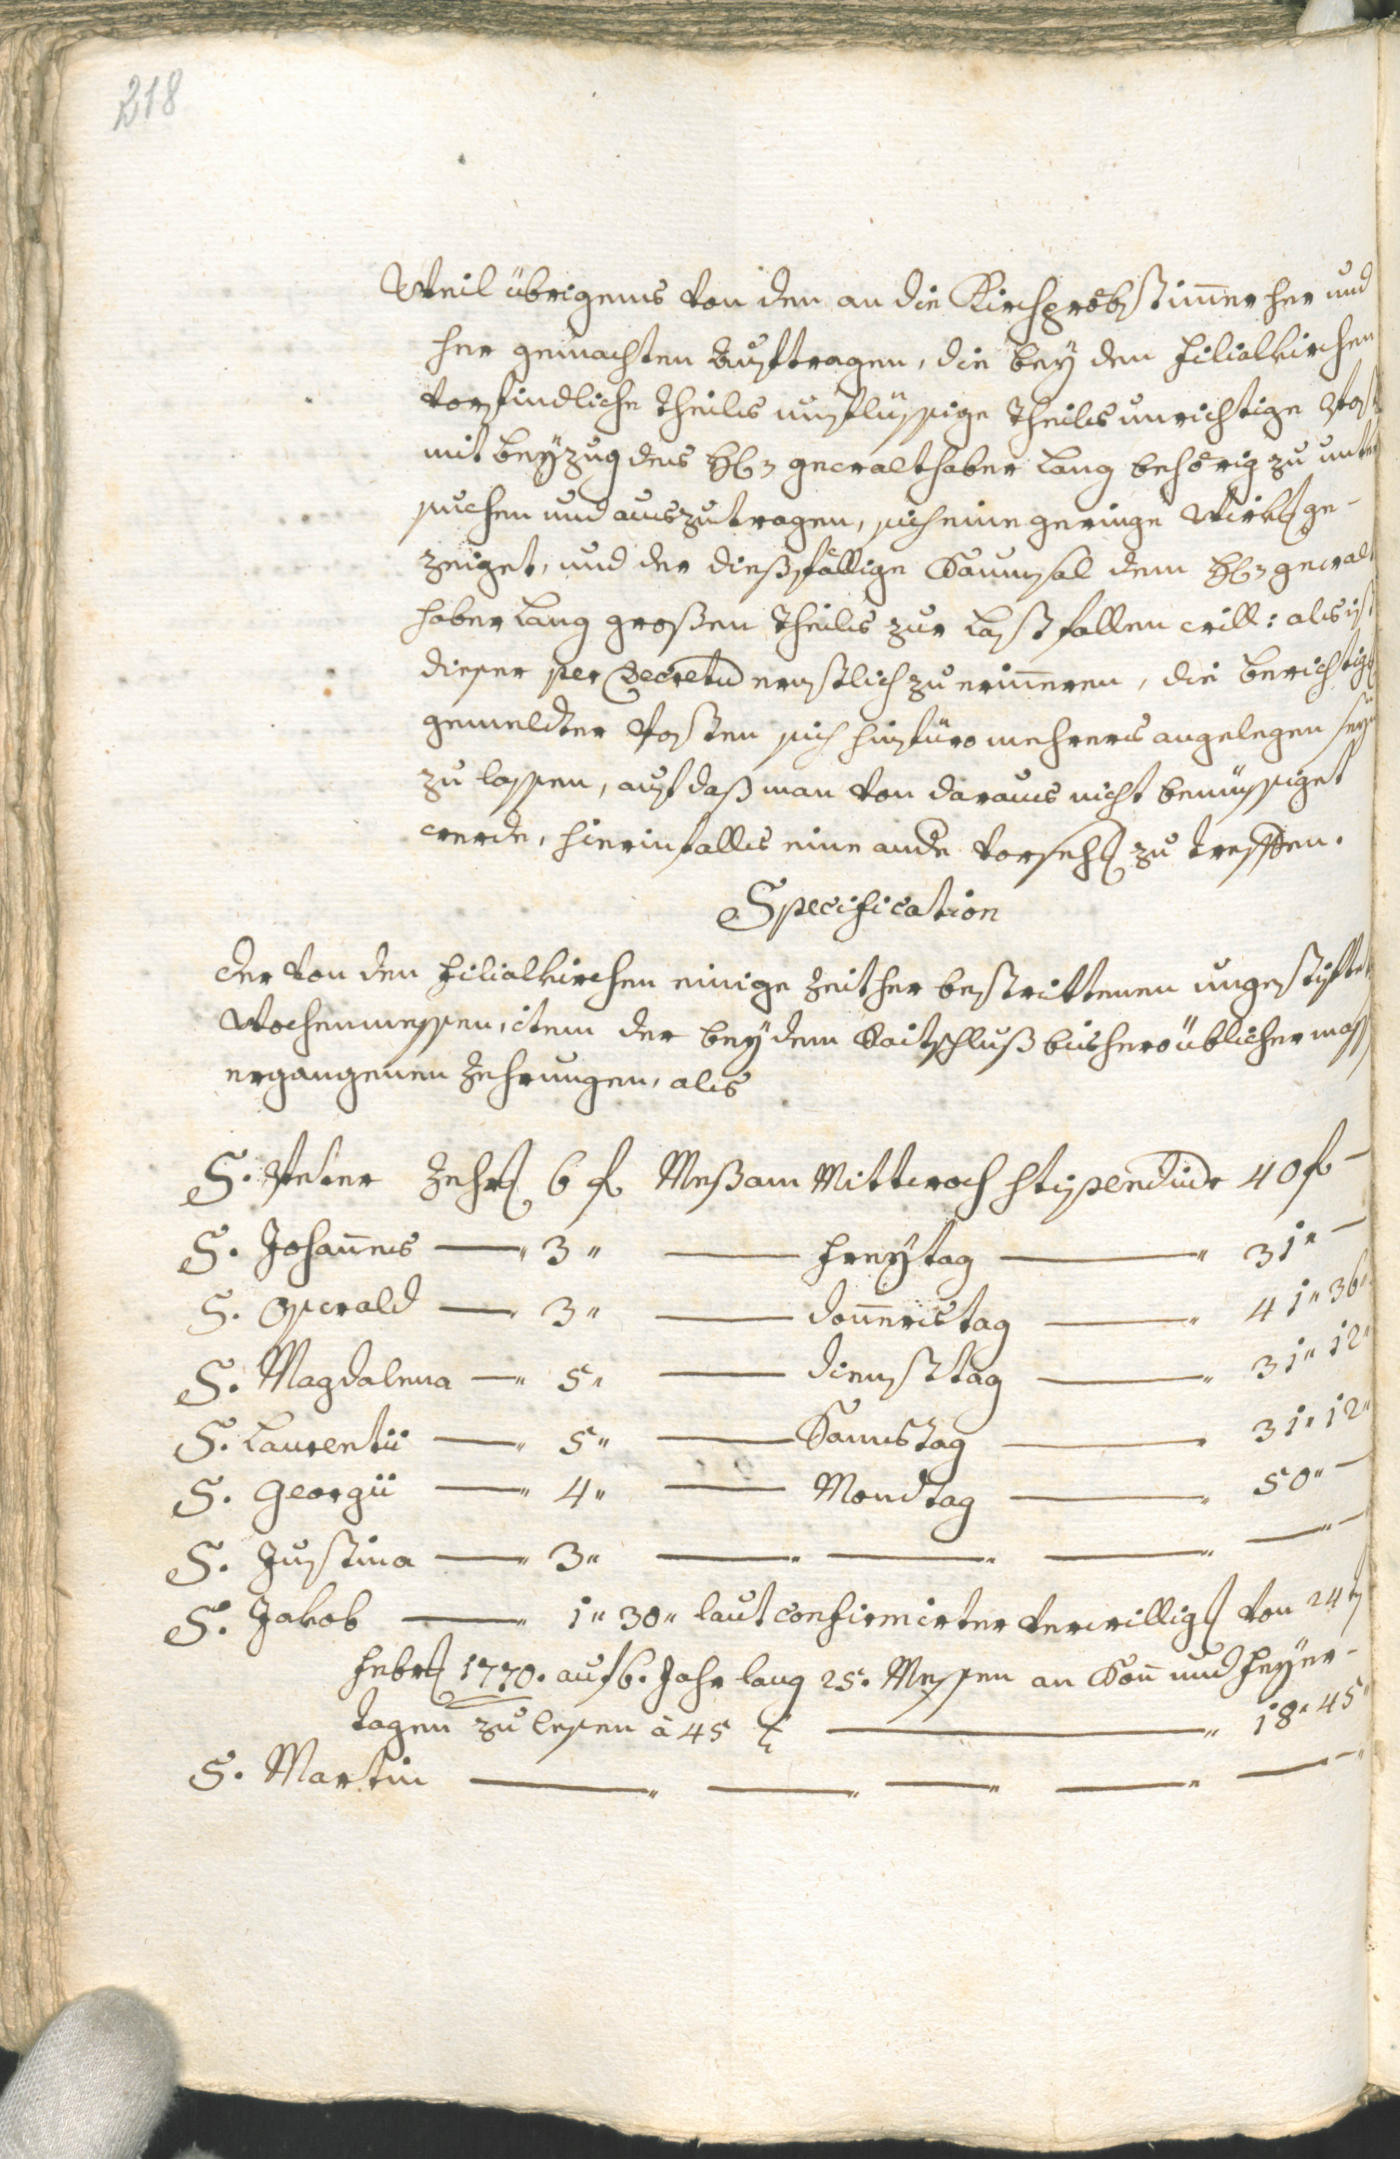 218
Weil übrigens von den an die Kirchpröbst immer her und
her gemachten Aufträgen, die bey den Filialkirchen
vorfindliche theils unflüssige theils unrichtige Post
mit beyzug des H: gewalthaber Lang behörig zu unter
suchen und auszutragen, sich eine geringe Wirkg ge-
zeiget, und der dießfällige Saumsal dem H: gewalt
haber Lang großen theils zur Last fallen will: als ist
dieser per Decretum ernstlich zu erinneren, die berichtigg
gemeldter Posten sich hinfüro mehrers angelegen seyn
zu lassen, auf daß man von daraus nicht bemüssiget
werde, hierinfalls eine andere vorsehg zu treffen.
Specification
der von den Filialkirchen einige Zeit her bestrittenen ungestifteten
Wochenmessen, item der bey dem Raitschluß bishero üblichermassen
ergangenen Zehrungen, als
S. Peter Zehrg 6 f Meß am Mittwoch stipendium 40 f —
S. Johannes — " 3 " — Freytag — " 31 " —
S. Oswald — " 3 " — Donnerstag — " 41 " 36 "
S. Magdalena — " 5 " — Dienstag — " 31 " 12 "
S. Laurentii — " 5 " — Samstag — " 31 " 12 "
S. Georgii — " 4 " — Mondtag — " 50 " —
S. Justina — " 3 " — " — " — " — " —
S. Jakob — " 1 " 30 " laut confirmirter verwilligg von 24t
Febr 1770. auf 6. Jahr lang 25. Messen an Sonn und Feyer-
tagen zu lesen à 45 x — " 18 " 45 "
S. Martin — " — " — " — " — "